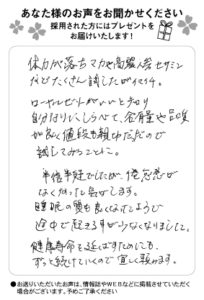 あなた様のお声をお聞かせください
採用された方にはプレゼントを
お届けいたします！
体力が落ちマカや高麗人参セサミン
などたくさん試したがイマイチ。
ローヤルゼリーがいいと知り
自分なりにしらべて、含有量や品質
が良く値段も親切だったので
試してみることに。
半信半疑でしたが、倦怠感が
なくなった気がします。
睡眠の質も良くなってようで
途中で起きる事が少なくなりました。
健康寿命を延ばすためにも、
ずっと続けていくので宜しく頼みます。
●お送りいただいたお声は、情報誌やWEBなどに掲載させていただく
場合がございます。予めご了承ください